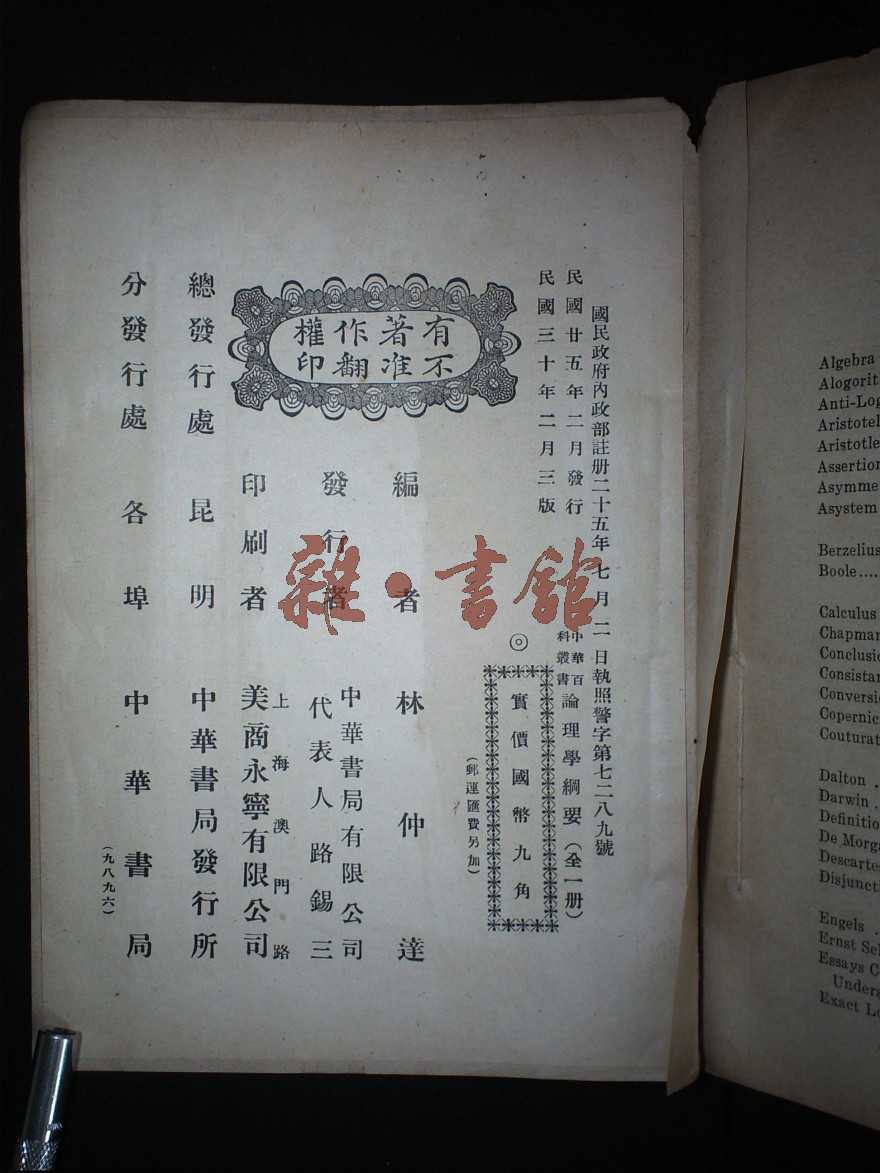 國民政府內政部註册二十五年七月二日執照警字第七二八九號
民國廿五年二月發行
民國三十年二月三版
中華百科叢書
論理學綱要(全一册)
◎
實價國幣九角
(郵運匯費另加)
有著作權
不准翻印
編者 林仲達
發行者 中華書局有限公司
代表人路錫三
印刷者 上海澳門路
美商永寧有限公司
總發行處 昆明 中華書局發行所
分發行處 各埠 中華書局
(九八九六)
雜·書館
Algebra
Alogorit
Anti-Log
Aristotel
Aristotle
Assertion
Asymme
Asystem
Berzelius
Boole....
Calculus
Chapman
Conclusio
Consistan
Conversio
Copernic
Couturat
Dalton .
Darwin .
Definitio
De Morga
Descartes
Disjuncti
Engels .
Ernst Sch
Essays C
Unders
Exact Lo